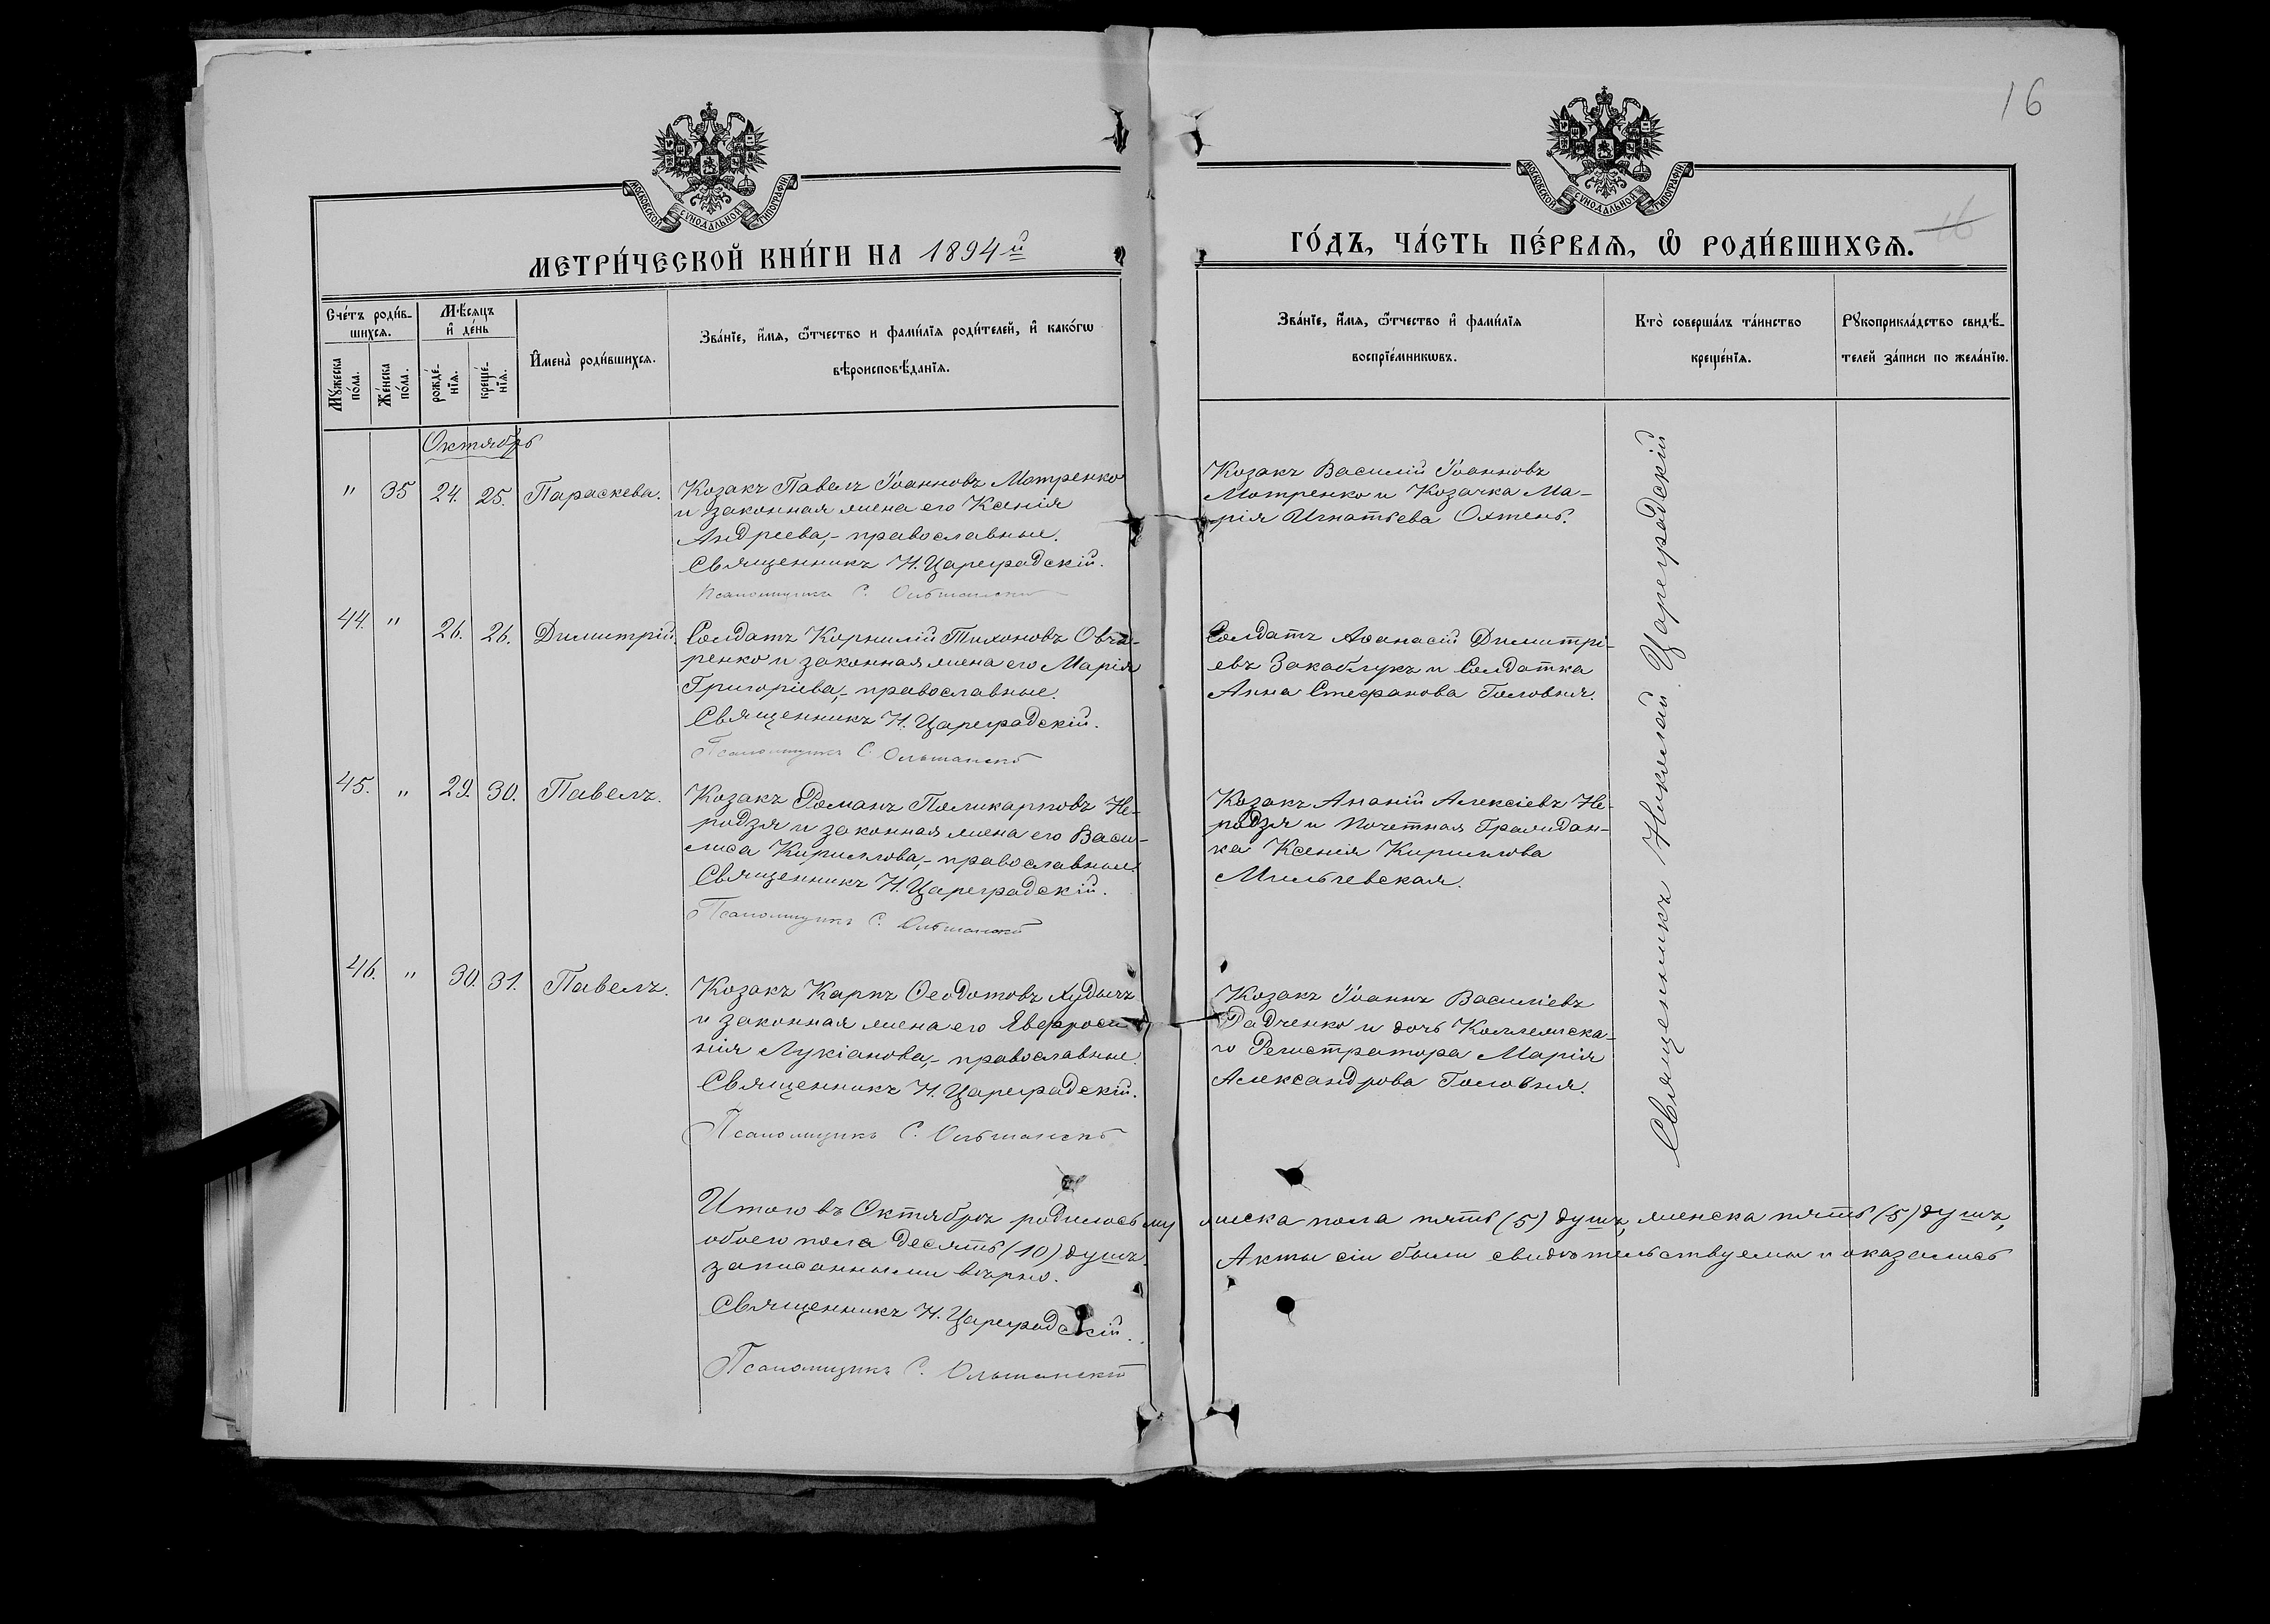 16
МОСКОВСКОЙ СѴНОДАЛЬНОЙ ТИПОГРАФІИ.
МОСКОВСКОЙ СѴНОДАЛЬНОЙ ТИПОГРАФІИ.
МЕТРИ́ЧЕСКОЙ КНИ́ГИ НА 1894й
ГО́ДЪ, ЧА́СТЬ ПЕ́РВАѦ, Ѡ҆ РОДИ́ВШИХСѦ.
16
Сче́тъ роди́в-
шихсѧ.
Мꙋ́жеска
по́ла.
Же́нска
по́ла.
Мѣ́сѧцъ
и҆ де́нь
рожде́-
нїѧ.
креще́-
нїѧ.
И҆мена̀ роди́вшихсѧ.
Зва́нїе, и҆́мѧ, ѻ҆́тчество и фами́лїѧ роди́телей, и҆ како́гѡ
вѣроисповѣ́данїѧ.
Зва́нїе, и҆́мѧ, ѻ҆́тчество и҆ фами́лїѧ
воспрїе́мникѡвъ.
Кто̀ соверша́лъ та́инство
креще́нїѧ.
Рꙋкоприкла́дство свидѣ́-
телей за́писи по жела́нїю.
Октябрь
" 35 24. 25. Параскева.
Козакъ Павелъ Іоанновъ Мотренко
и законная жена его Ксенія
Андреева,- православные.
Священникъ Н. Цареградскій.
Псаломщикъ С. Ольшанскій
Козакъ Василій Іоанновъ
Мотренко и Козачка Ма-
рія Игнатьева Охтень.
44. " 26. 26. Димитрій.
Солдатъ Корнилій Тихоновъ Овча-
ренко и законная жена его Марія
Григоріева,- православные.
Священникъ Н. Цареградскій.
Псаломщикъ С. Ольшанскій
Солдатъ Аѳанасій Димитрі-
евъ Закаблукъ и Солдатка
Анна Стефанова Головня.
45. " 29. 30. Павелъ.
Козакъ Романъ Поликарповъ Не-
родзя и законная жена его Васи-
лиса Кириллова,- православные.
Священникъ Н. Цареградскій.
Псаломщикъ С. Ольшанскій
Козакъ Ананій Алексіевъ Не-
родзя и Почетная Граждан-
ка Ксенія Кириллова
Мильчевская.
46. " 30. 31. Павелъ.
Козакъ Карпъ Ѳеодотовъ Худычъ
и законная жена его Евфроси
нія Лукіанова,- православные
Священникъ Н. Цареградскій.
Псаломщикъ С. Ольшанскій
Козакъ Іоаннъ Василіевъ
Радченко и дочь Коллежска-
го Регистратора Марія
Александрова Головня.
Священникъ Николай Цареградскій
Итого въ Октябрѣ родилось му жеска пола пять (5) душъ, женска пять (5) душъ,
обоего пола десять (10) душъ. Акты сіи были свидѣтельствуемы и оказались
записанными вѣрно.
Священникъ Н. Цареградскій.
Псаломщикъ С. Ольшанскій